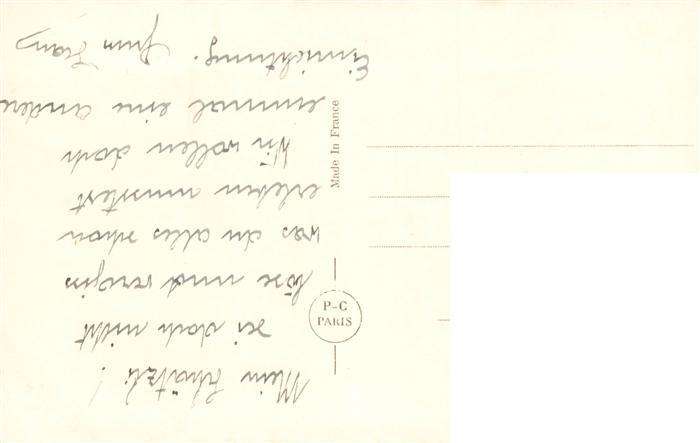 Mein Schätzli!
sei doch nicht
böse und vergiss
was du alles schon
erleben musstest
Wir wollen doch
einmal eine andere
Einrichtung. Jean
Made In France
P-C
PARIS